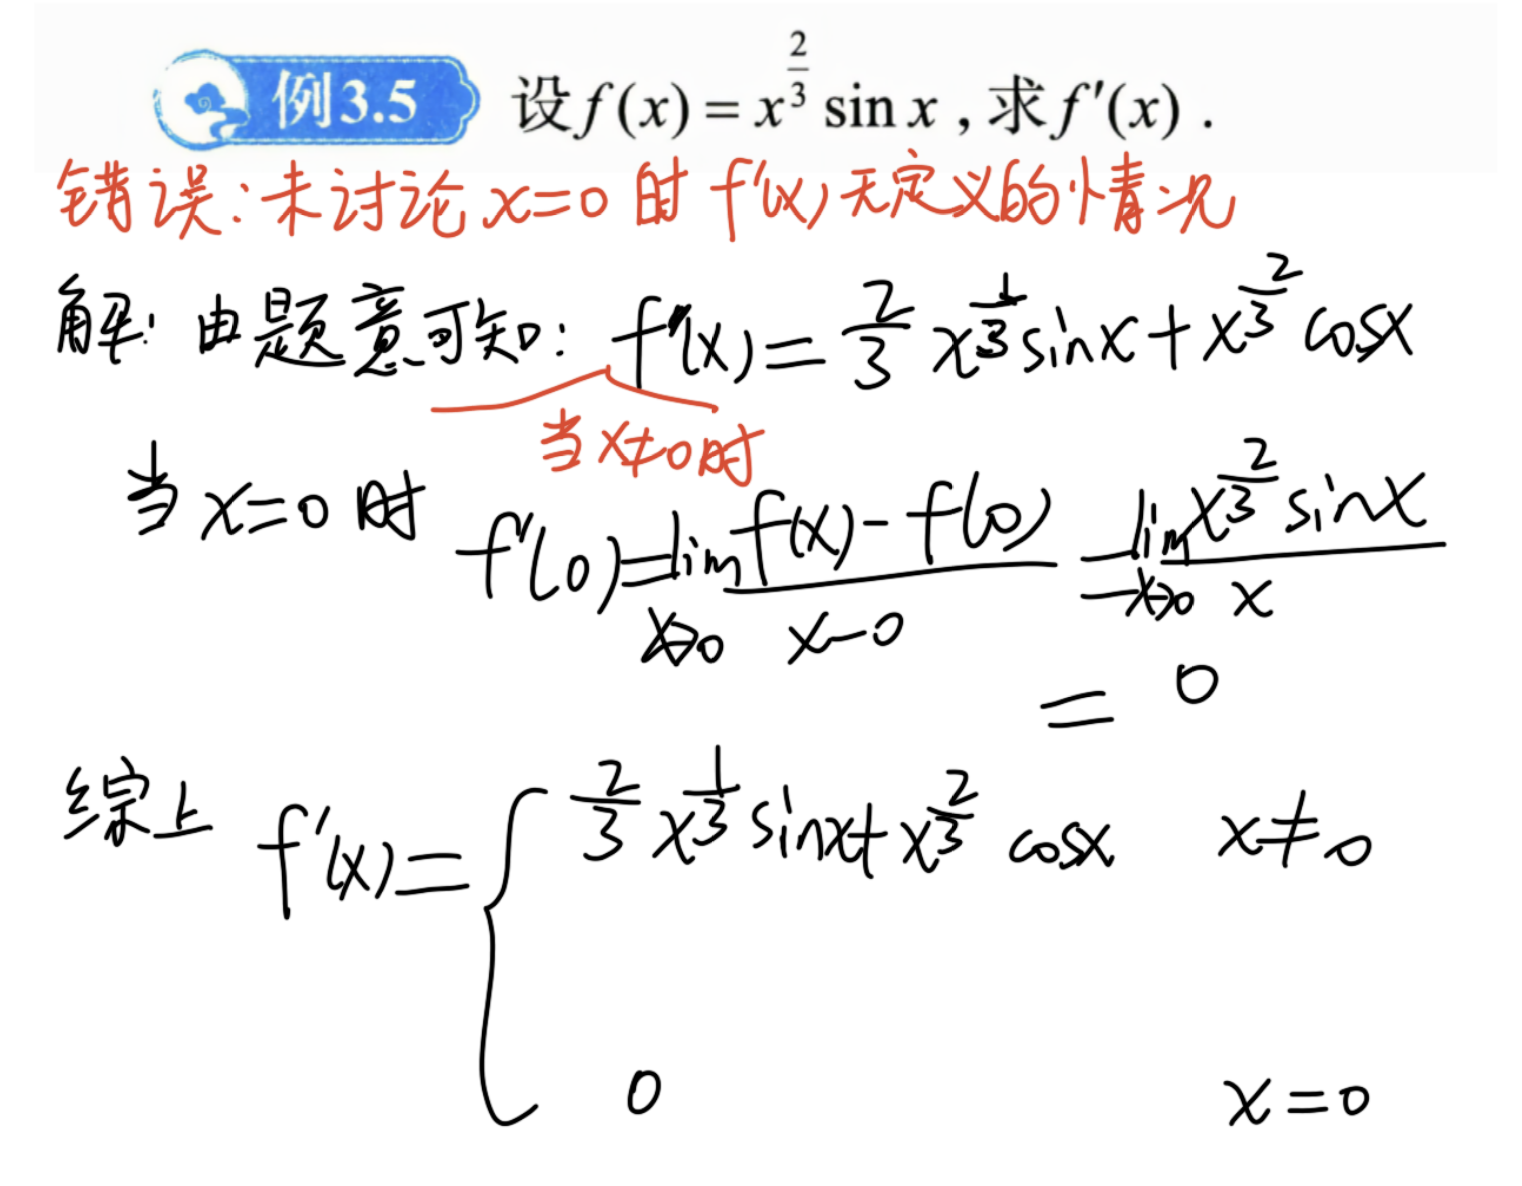 例3.5 设f(x)=x^{\frac{2}{3}} sin x,求f'(x).
错误:未讨论x=0时f'(x)无定义的情况
解:由题意可知:f'(x)=\frac{2}{3}x^{\frac{1}{3}}sinx+x^{\frac{2}{3}}cosx
当x≠0时
当x=0时 f'(0)=\lim_{x→0}\frac{f(x)-f(0)}{x-0}=\lim_{x→0}\frac{x^{\frac{2}{3}}sinx}{x}
=0
综上 f'(x)={ \frac{2}{3}x^{\frac{1}{3}}sinx+x^{\frac{2}{3}}cosx x≠0
0 x=0